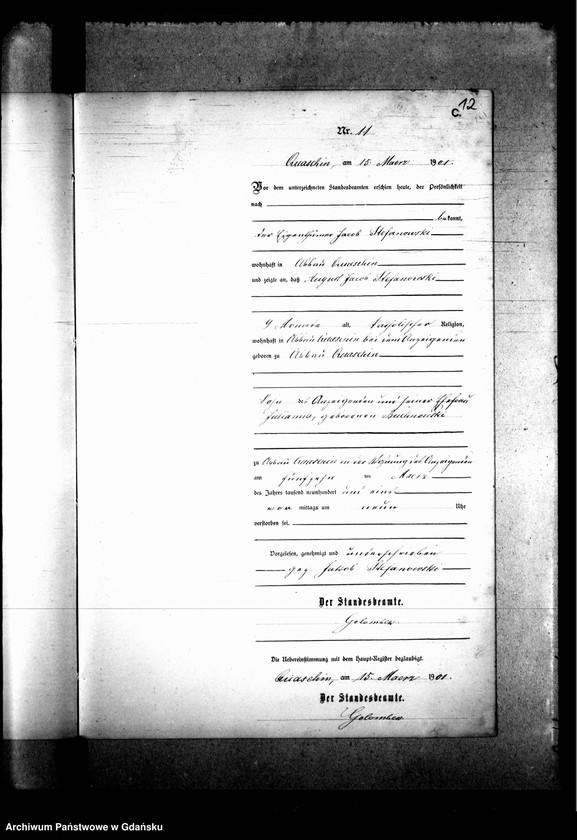 C. 12
Nr. 11
Quaschin, am 15. Maerz 1901.
Vor dem unterzeichneten Standesbeamten erschien heute, der Persönlichkeit
nach
bekannt,
der Eigenthümer Jacob Stefanowski
wohnhaft in Abbau Quaschin
und zeigte an, daß August Jacob Stefanowski
9 Monate alt, katholischer Religion,
wohnhaft in Abbau Quaschin bei dem Anzeigenden
geboren zu Abbau Quaschin
Sohn des Anzeigenden und seiner Ehefrau
Julianna, geborenen
zu Abbau Quaschin in der Wohnung des Anzeigenden
am fünfzehn ten Maerz
des Jahres tausend neunhundert und eins
vor mittags um neun Uhr
verstorben sei.
Vorgelesen, genehmigt und unterschrieben
gez Jakob Stefanowski
Der Standesbeamte.
Golombek
Die Uebereinstimmung mit dem Haupt-Register beglaubigt.
Quaschin, am 15. Maerz 1901.
Der Standesbeamte.
Golombek
Archiwum Państwowe w Gdańsku